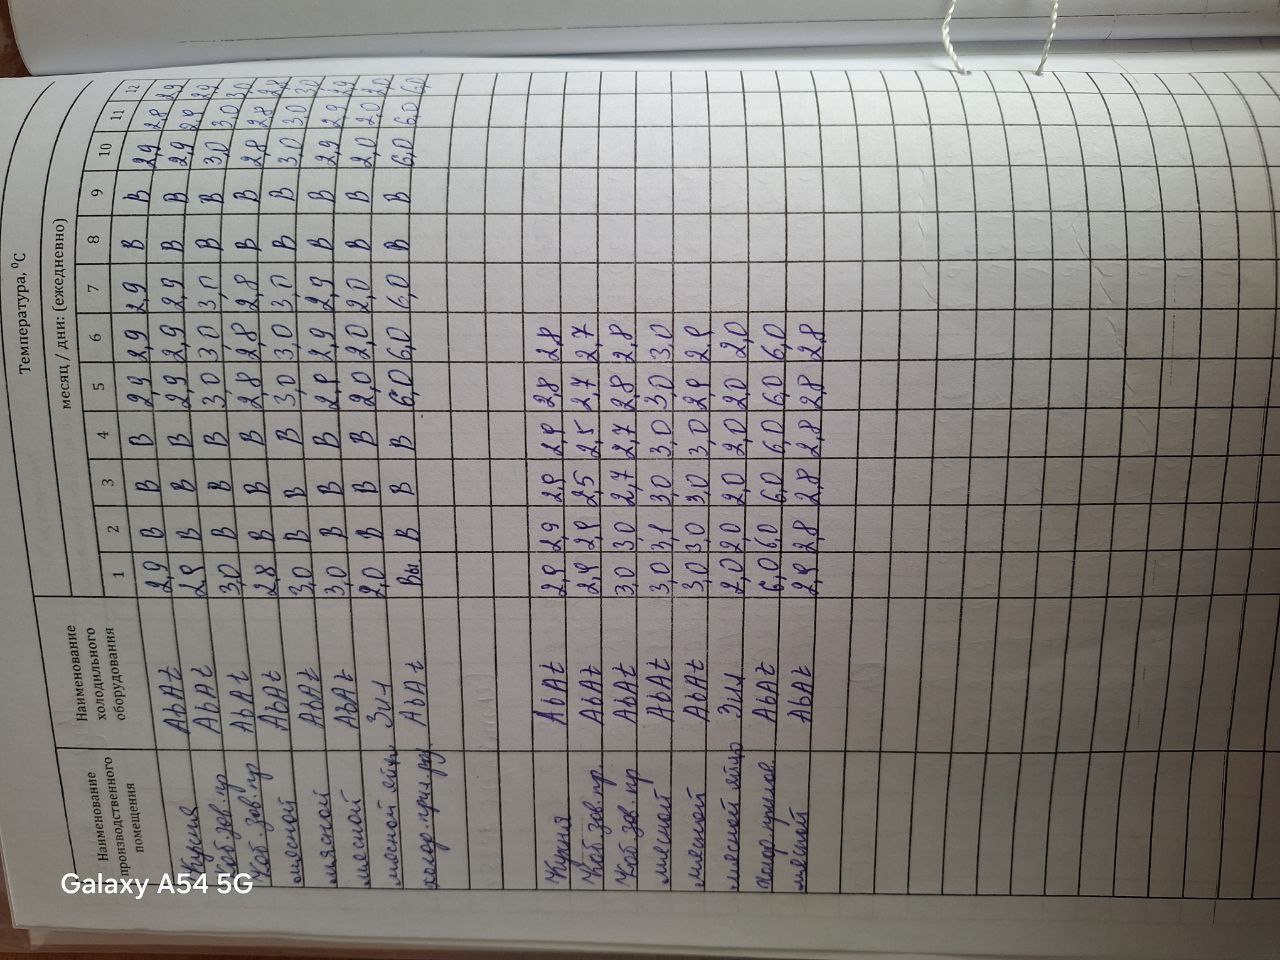 Температура, °С
месяц / дни: (ежедневно)
Наименование производственного помещения
Наименование холодильного оборудования
1 2 3 4 5 6 7 8 9 10 11 12
Кухня АbАt 2,9 В В В 2,9 2,9 2,9 В В 2,9 2,8 2,9
Каб. зав. пр АbАt 2,9 В В В 2,9 2,9 2,9 В В 2,9 2,9 2,9
Каб. зав. пр АbАt 3,0 В В В 3,0 3,0 3,0 В В 3,0 3,0 3,0
мясной АbАt 2,8 В В В 2,8 2,8 2,8 В В 2,8 2,8 2,8
мясной АbАt 3,0 В В В 3,0 3,0 3,0 В В 3,0 3,0 3,0
мясной АbАt 3,0 В В В 2,9 2,9 2,9 В В 2,9 2,9 2,9
мясной яйцо Зил 2,0 В В В 2,0 2,0 2,0 В В 2,0 2,0 2,0
АbАt Вы В В В 6,0 6,0 6,0 В В 6,0 6,0 6,0
Кухня АbАt 2,9 2,9 2,9 2,9 2,8 2,8
Каб зав. пр. АbАt 2,9 2,9 2,5 2,5 2,7 2,7
Каб зав. пр АbАt 3,0 3,0 2,7 2,7 2,8 2,8
мясной АbАt 3,0 3,1 3,0 3,0 3,0 3,0
мясной АbАt 3,0 3,0 3,0 3,0 2,9 2,9
мясной яйцо Зил 2,0 2,0 2,0 2,0 2,0 2,0
АbАt 6,0 6,0 6,0 6,0 6,0 6,0
мясной АbАt 2,9 2,8 2,8 2,8 2,8 2,8
Galaxy A54 5G